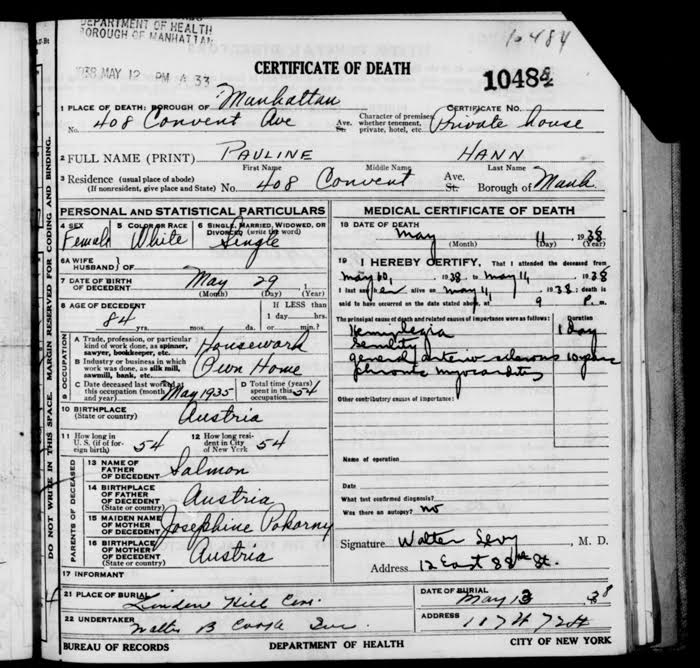 DEPARTMENT OF HEALTH
BOROUGH OF MANHATTAN
10484
1938 MAY 12 PM 4 33
CERTIFICATE OF DEATH
10484
CERTIFICATE NO.
1 PLACE OF DEATH: BOROUGH OF Manhattan
No. 408 Convent Ave Ave. St. Character of premises, whether tenement, private, hotel, etc. Private house
2 FULL NAME (PRINT) PAULINE HANN
First Name Middle Name Last Name
3 Residence (usual place of abode) (If nonresident, give place and State) No. 408 Convent Ave. St. Borough of Manh.
PERSONAL AND STATISTICAL PARTICULARS
4 SEX Female 5 COLOR OR RACE White 6 SINGLE, MARRIED, WIDOWED, OR DIVORCED (write the word) Single
6A WIFE HUSBAND } of
7 DATE OF BIRTH OF DECEDENT May 29, 1
(Month) (Day) (Year)
8 AGE OF DECEDENT 84 yrs. mos. da. If LESS than 1 day hrs. or min.?
9 OCCUPATION
A Trade, profession, or particular kind of work done, as spinner, sawyer, bookkeeper, etc. Housework
B Industry or business in which work was done, as silk mill, sawmill, bank, etc. Own Home
C Date deceased last worked at this occupation (month and year) May 1935 D Total time (years) spent in this occupation 54
10 BIRTHPLACE (State or country) Austria
11 How long in U. S. (if of foreign birth) 54 12 How long resident in City of New York 54
PARENTS OF DECEASED
13 NAME OF FATHER OF DECEDENT Salmon
14 BIRTHPLACE OF FATHER OF DECEDENT (State or country) Austria
15 MAIDEN NAME OF MOTHER OF DECEDENT Josephine Pokorny
16 BIRTHPLACE OF MOTHER OF DECEDENT (State or country) Austria
17 INFORMANT
MEDICAL CERTIFICATE OF DEATH
18 DATE OF DEATH May 11, 1938
(Month) (Day) (Year)
19 I HEREBY CERTIFY, That I attended the deceased from
May 10, 1938 to May 11, 1938
I last saw her alive on May 11, 1938; death is
said to have occurred on the date stated above, at 9 P.m.
The principal cause of death and related causes of importance were as follows: Duration
Hemiplegia 1 day
Senility
general arterio sclerosis 10 years
chronic myocarditis
Other contributory causes of importance:
Name of operation
Date
What test confirmed diagnosis?
Was there an autopsy? no
Signature Walter Levy, M. D.
Address 12 East 88th St.
21 PLACE OF BURIAL Linden Hill Cem. DATE OF BURIAL May 13 38
22 UNDERTAKER Walter B Cooke Inc. ADDRESS 117 W 72 St
BUREAU OF RECORDS DEPARTMENT OF HEALTH CITY OF NEW YORK
DO NOT WRITE IN THIS SPACE. MARGIN RESERVED FOR CODING AND BINDING.